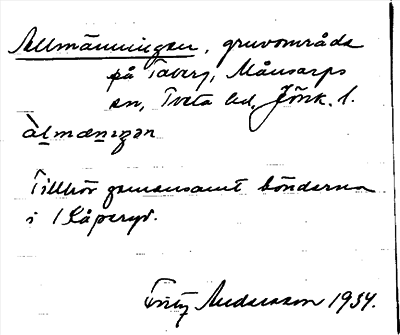 Allmänningen, gruvområde
på Taberg, Månsarps
sn, Tveta hd, Jönk. l.
àlmæniŋən
Tillhör gemensamt bönderna
i Kåperyd.
Fritz Andersson 1934.